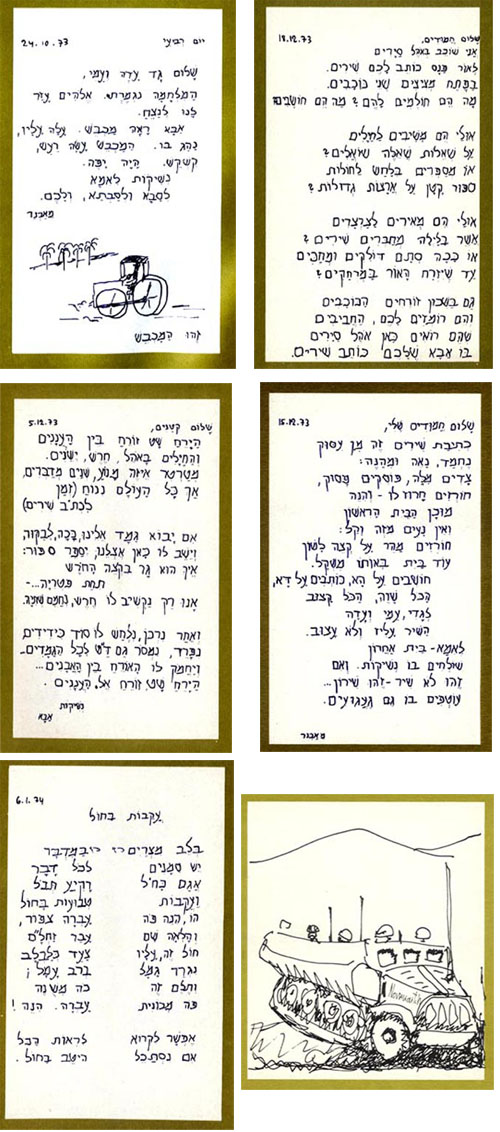 יום רביעי 24.10.73
שלום גד עדה ועמי,
המלחמה נגמרת. אלהים עזר
לנו לנצח.
אבא ראה מכבש. עלה עליו,
נהג בו. המכבש עשה רעש,
קשקש. היה יפה.
נשיקות לאמא
לסבא ולסבתא, ולכם.
מאבנר
זהו המכבש
שלום חמודים, 18.12.73
אני שוכב באהל סירים
לאור פנס כותב לכם שירים.
בפתח מציצים שני כוכבים.
מה הם חולמים להם? מה הם חושבים?
אולי הם משיבים לחיילים
על שאלות שאלה שואלים?
או מספרים בלחש לחולות
ספור קטן על ארצות גדולות?
אולי הם מאירים לצרצרים
אשר בלילה מחברים שירים?
או ככה סתם דולקים ומחכים
עד שיזרח האור במרחקים?
גם בששון זורחים הכוכבים
והם רומזים לכם, החביבים
שהם רואים כאן אהל סירים
בו אבא שלכם כותב שירים.
שלום קטנים, 5.12.73
הירח שט זורח בין העננים
והחיילים באהל, חרש, ישנים.
מטרטר איזה מנוע, שנים מדברים,
אך כל העולם ננוח (זמן
לכתב שירים)
אם יבוא גמד אלינו, ככה, לבקור,
וישב לו כאן אצלנו, יספר ספור:
איך הוא גר בקצה החורש
תחת פטריה...-
אנו רק נקשיב לו חרש,
ואחר נרכן, נלחש לו סוד כידידים,
נפרד, נמסר גם ד"ש לכל הגמדים.
ויחמק לו האורח בין האבנים...
הירח שט, זורח אל העננים.
נשיקות
אבא
שלום חמודים שלי, 15.12.73
כתיבת שירים זה מן עסוק
נחמד, נאה ומהנה:
צדים מלה, פוסקים פסוק,
חורזים חרוז לו - והנה
מוכן הבית הראשון
ואין נעים מזה וקל:
חורזים מהר על קצה לשון
עוד בית באותו משקל.
חושבים על הא, כותבים על דא,
הכל שוה, הכל קצוב
לגדי, עמי ועדה
השיר עליז ולא עצוב.
לאמא - בית אחרון
שולחים בו נשיקות. ואם
זהו לא שיר - זהו שירון...
עוטפים בו גם געגועים.
מאבנר
6.1.74
עקבות בחול
בלב מצרים במדבר
יש סמנים לכל דבר
אגם כחל רקיע תכל
ועקבות טבועות בחול
הו, הנה פה עברה צפור,
והלאה שם עבר זחל"ם
חול זה, עליו צעד כלבלב
נגרר גמל ברב עמל;
ותלם זה כה משנה
פה מכונית עברה. הנה!
אפשר לקרוא לראות הכל
אם נסתכל היטב בחול.